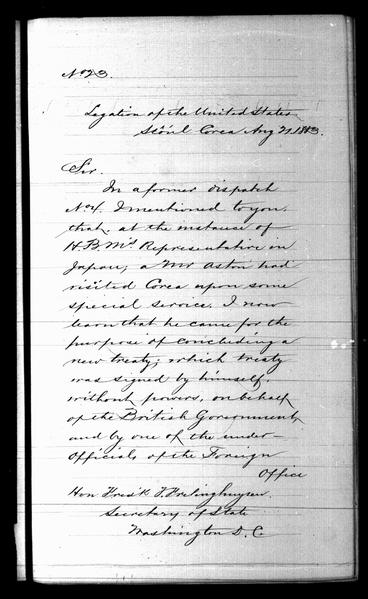 No 23.
Legation of the United States
Seóul Corea Aug 21. 1883.
Sir.
In a former dispatch
No 4. I mentioned to you.
that. at the instance of
H. B. M's Representative in
Japan, a Mr Aston had
visited Corea upon some
special service. I now
learn that he came for the
purpose of concluding a
new treaty; which treaty
was signed by himself,
without powers, on behalf
of the British Government,
and by one of the under-
Officials of the Foreign
Office
Hon Fred'k T. Frelinghuysen
Secretary of State
Washington D. C.